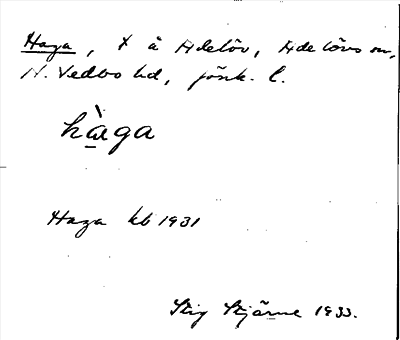 Haga, t å Adelöv, Adelövs sn,
N. Vedbo hd, Jönk. l.
hàga
Haga kb 1931
Stig Stjärne 1933.